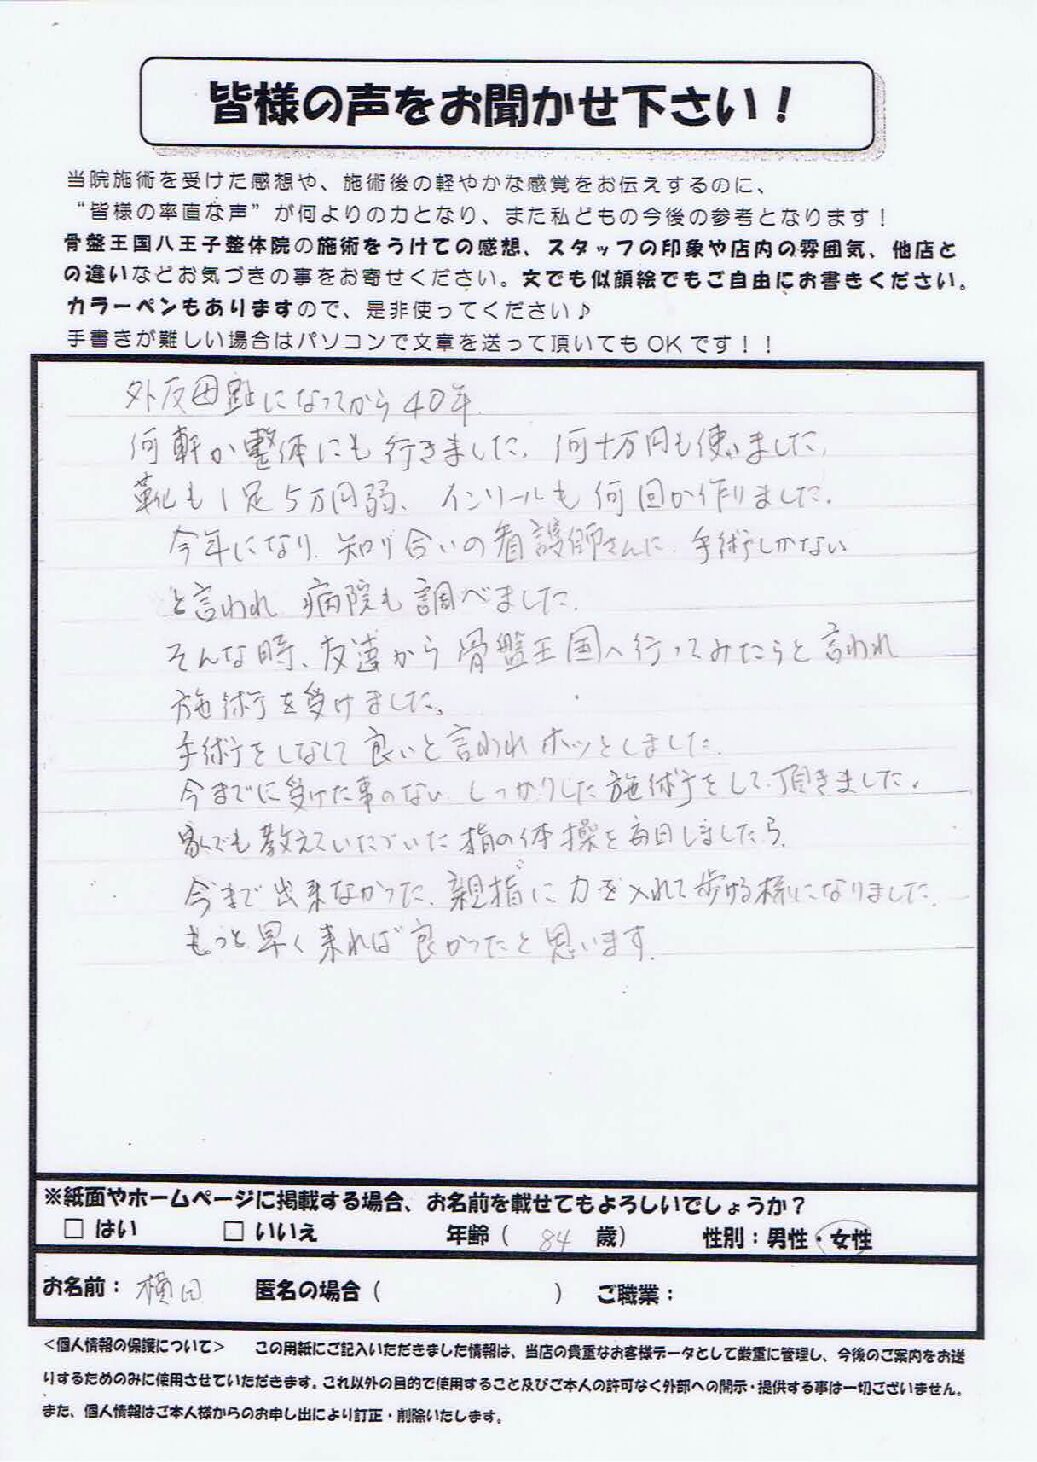 皆様の声をお聞かせ下さい！
当院施術を受けた感想や、施術後の軽やかな感覚をお伝えするのに、
“皆様の率直な声”が何よりの力となり、また私どもの今後の参考となります！
骨盤王国八王子整体院の施術をうけての感想、スタッフの印象や店内の雰囲気、他店と
の違いなどお気づきの事をお寄せください。文でも似顔絵でもご自由にお書きください。
カラーペンもありますので、是非使ってください♪
手書きが難しい場合はパソコンで文章を送って頂いてもOKです！！
外反母趾になってから40年
何軒か整体にも行きました。何十万円も使いました。
靴も1足5万円弱、インソールも何回か作りました。
今年になり、知り合いの看護師さんに、手術しかない
と言われ、病院も調べました。
そんな時、友達から骨盤王国へ行ってみたらと言われ
施術を受けました。
手術をしなくて良いと言われホッとしました。
今までに受けた事のない、しっかりした施術をして頂きました。
家でも教えていただいた指の体操を毎日しましたら、
今まで出来なかった、親指に力を入れて歩ける様になりました。
もっと早く来れば良かったと思います。
※紙面やホームページに掲載する場合、お名前を載せてもよろしいでしょうか？
□ はい □ いいえ 年齢（ 84 歳） 性別：男性・女性
お名前： 横田 匿名の場合（ ） ご職業：
＜個人情報の保護について＞ この用紙にご記入いただきました情報は、当店の貴重なお客様データとして厳重に管理し、今後のご案内をお送
りするためのみに使用させていただきます。これ以外の目的で使用すること及びご本人の許可なく外部への開示・提供する事は一切ございません。
また、個人情報はご本人様からのお申し出により訂正・削除いたします。